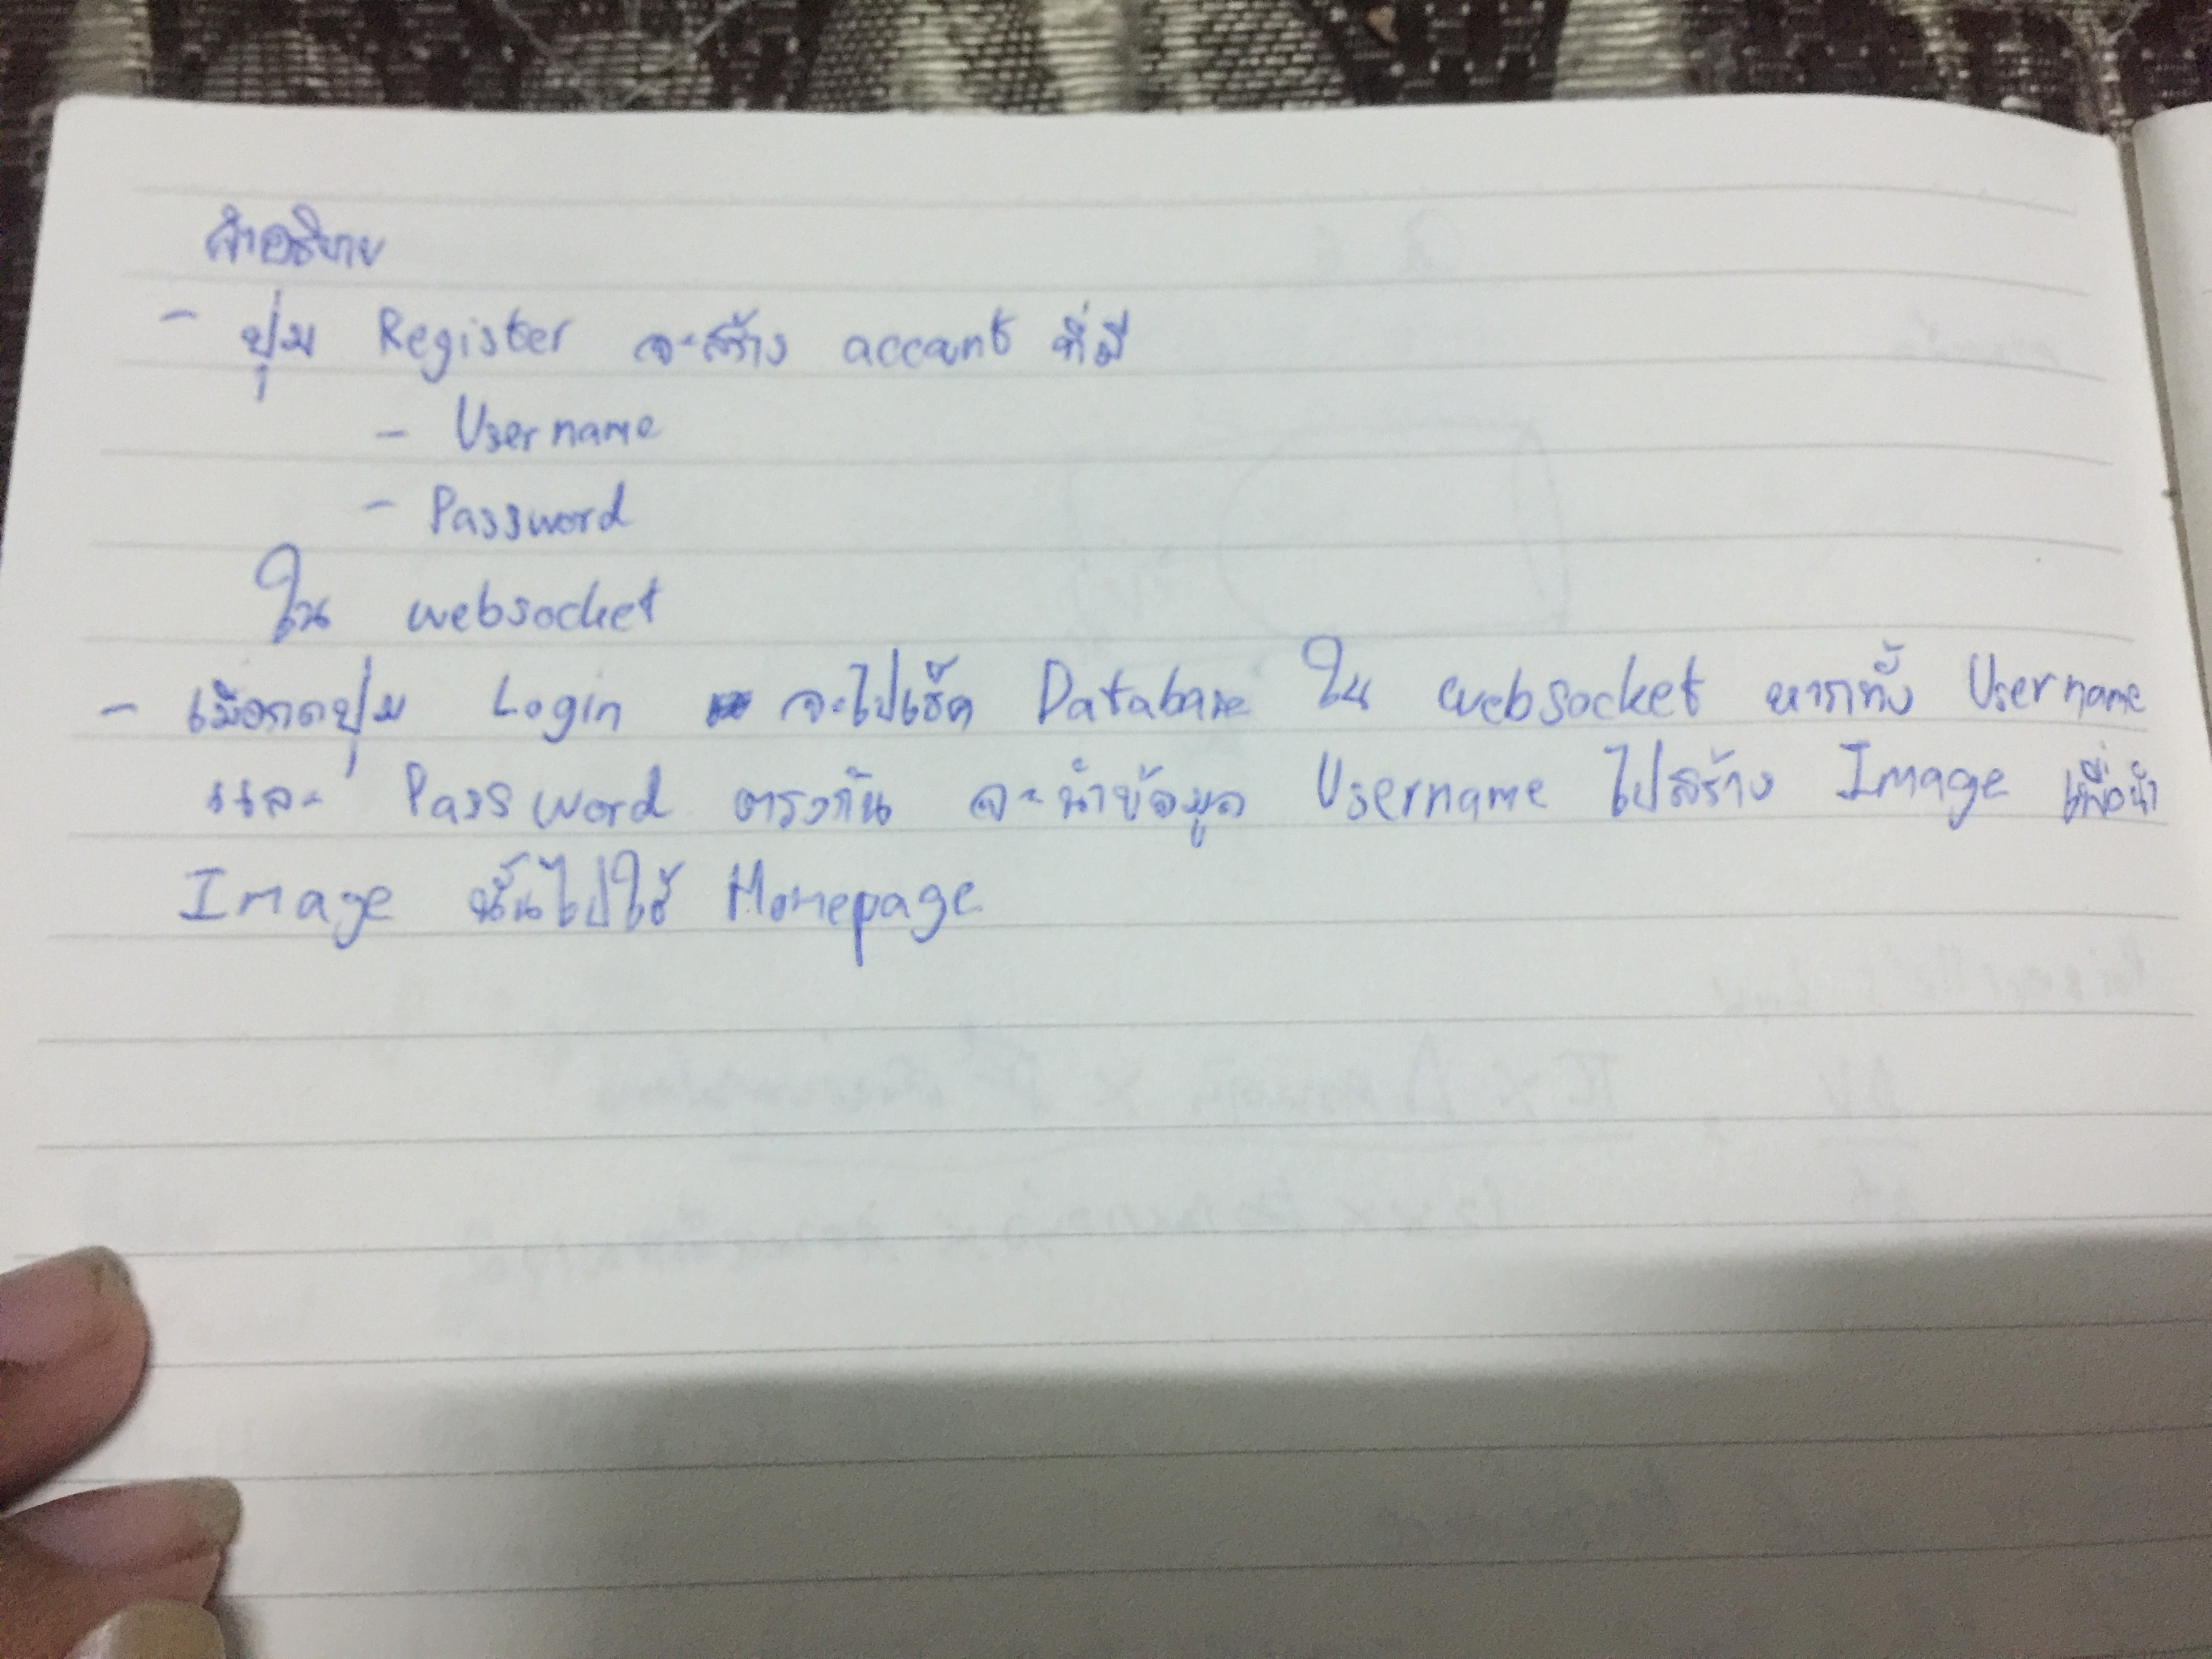 คำอธิบาย
- ปุ่ม Register จะสร้าง account ที่มี
- Username
- Password
ใน websocket
- เมื่อกดปุ่ม Login จะไปเช็ค Database ใน websocket หากทั้ง Username
และ Password ตรงกัน จะนำข้อมูล Username ไปสร้าง Image เพื่อนำ
Image นั้นไปใช้ Homepage